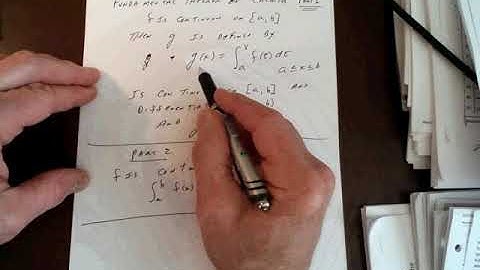 FUNDAMENTAL THEOREM OF CALCULUS PART 1
f IS CONTINUOUS ON [a, b]
THEN g IS DEFINED BY
g g(x) = ∫ₐˣ f(t) dt
a ≤ x ≤ b
IS CON ON [a, b] AND
DIFFERENTI b)
AND
PART 2
f IS CONT
∫ₐᵇ f(x)